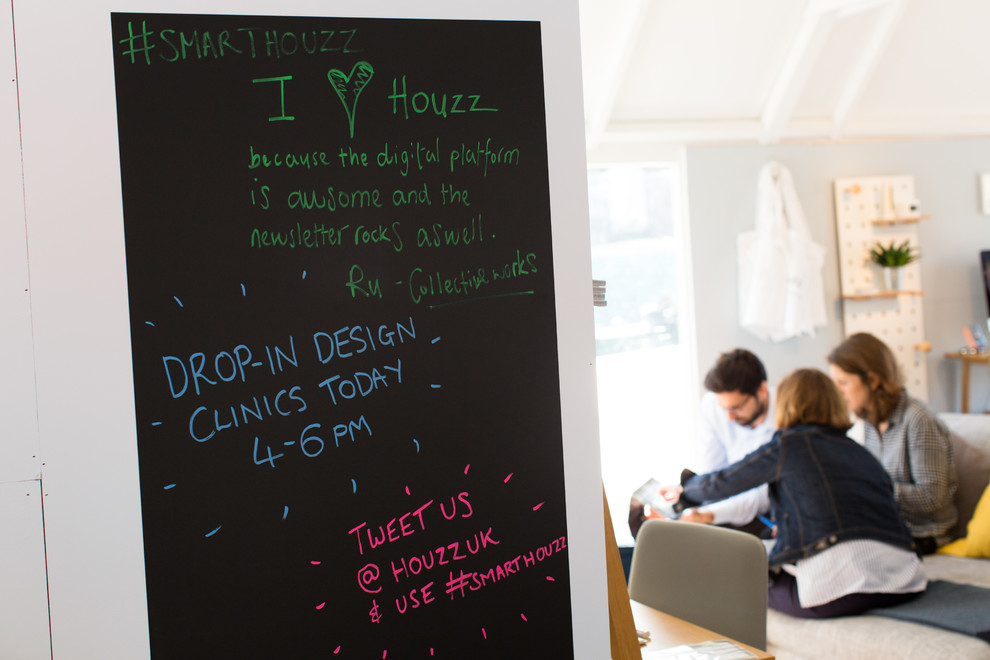 #SMARTHOUZZ
I ♥ Houzz
because the digital platform
is awsome and the
newsletter rocks aswell.
Ru - Collective works
DROP-IN DESIGN
CLINICS TODAY
4-6 PM
TWEET US
@ HOUZZUK
& USE #SMARTHOUZZ